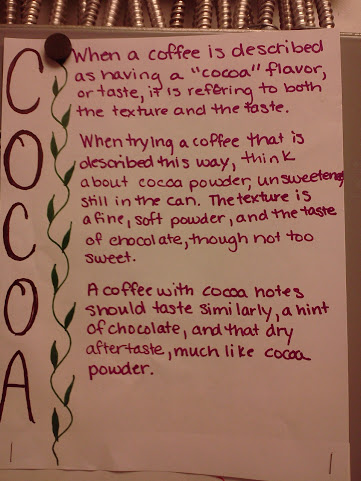 COCOA
When a coffee is described
as having a "cocoa" flavor,
or taste, it is refering to both
the texture and the taste.
When trying a coffee that is
described this way, think
about cocoa powder, unsweetened,
still in the can. The texture is
a fine, soft powder, and the taste
of chocolate, though not too
sweet.
A coffee with cocoa notes
should taste similarly, a hint
of chocolate, and that dry
aftertaste, much like cocoa
powder.